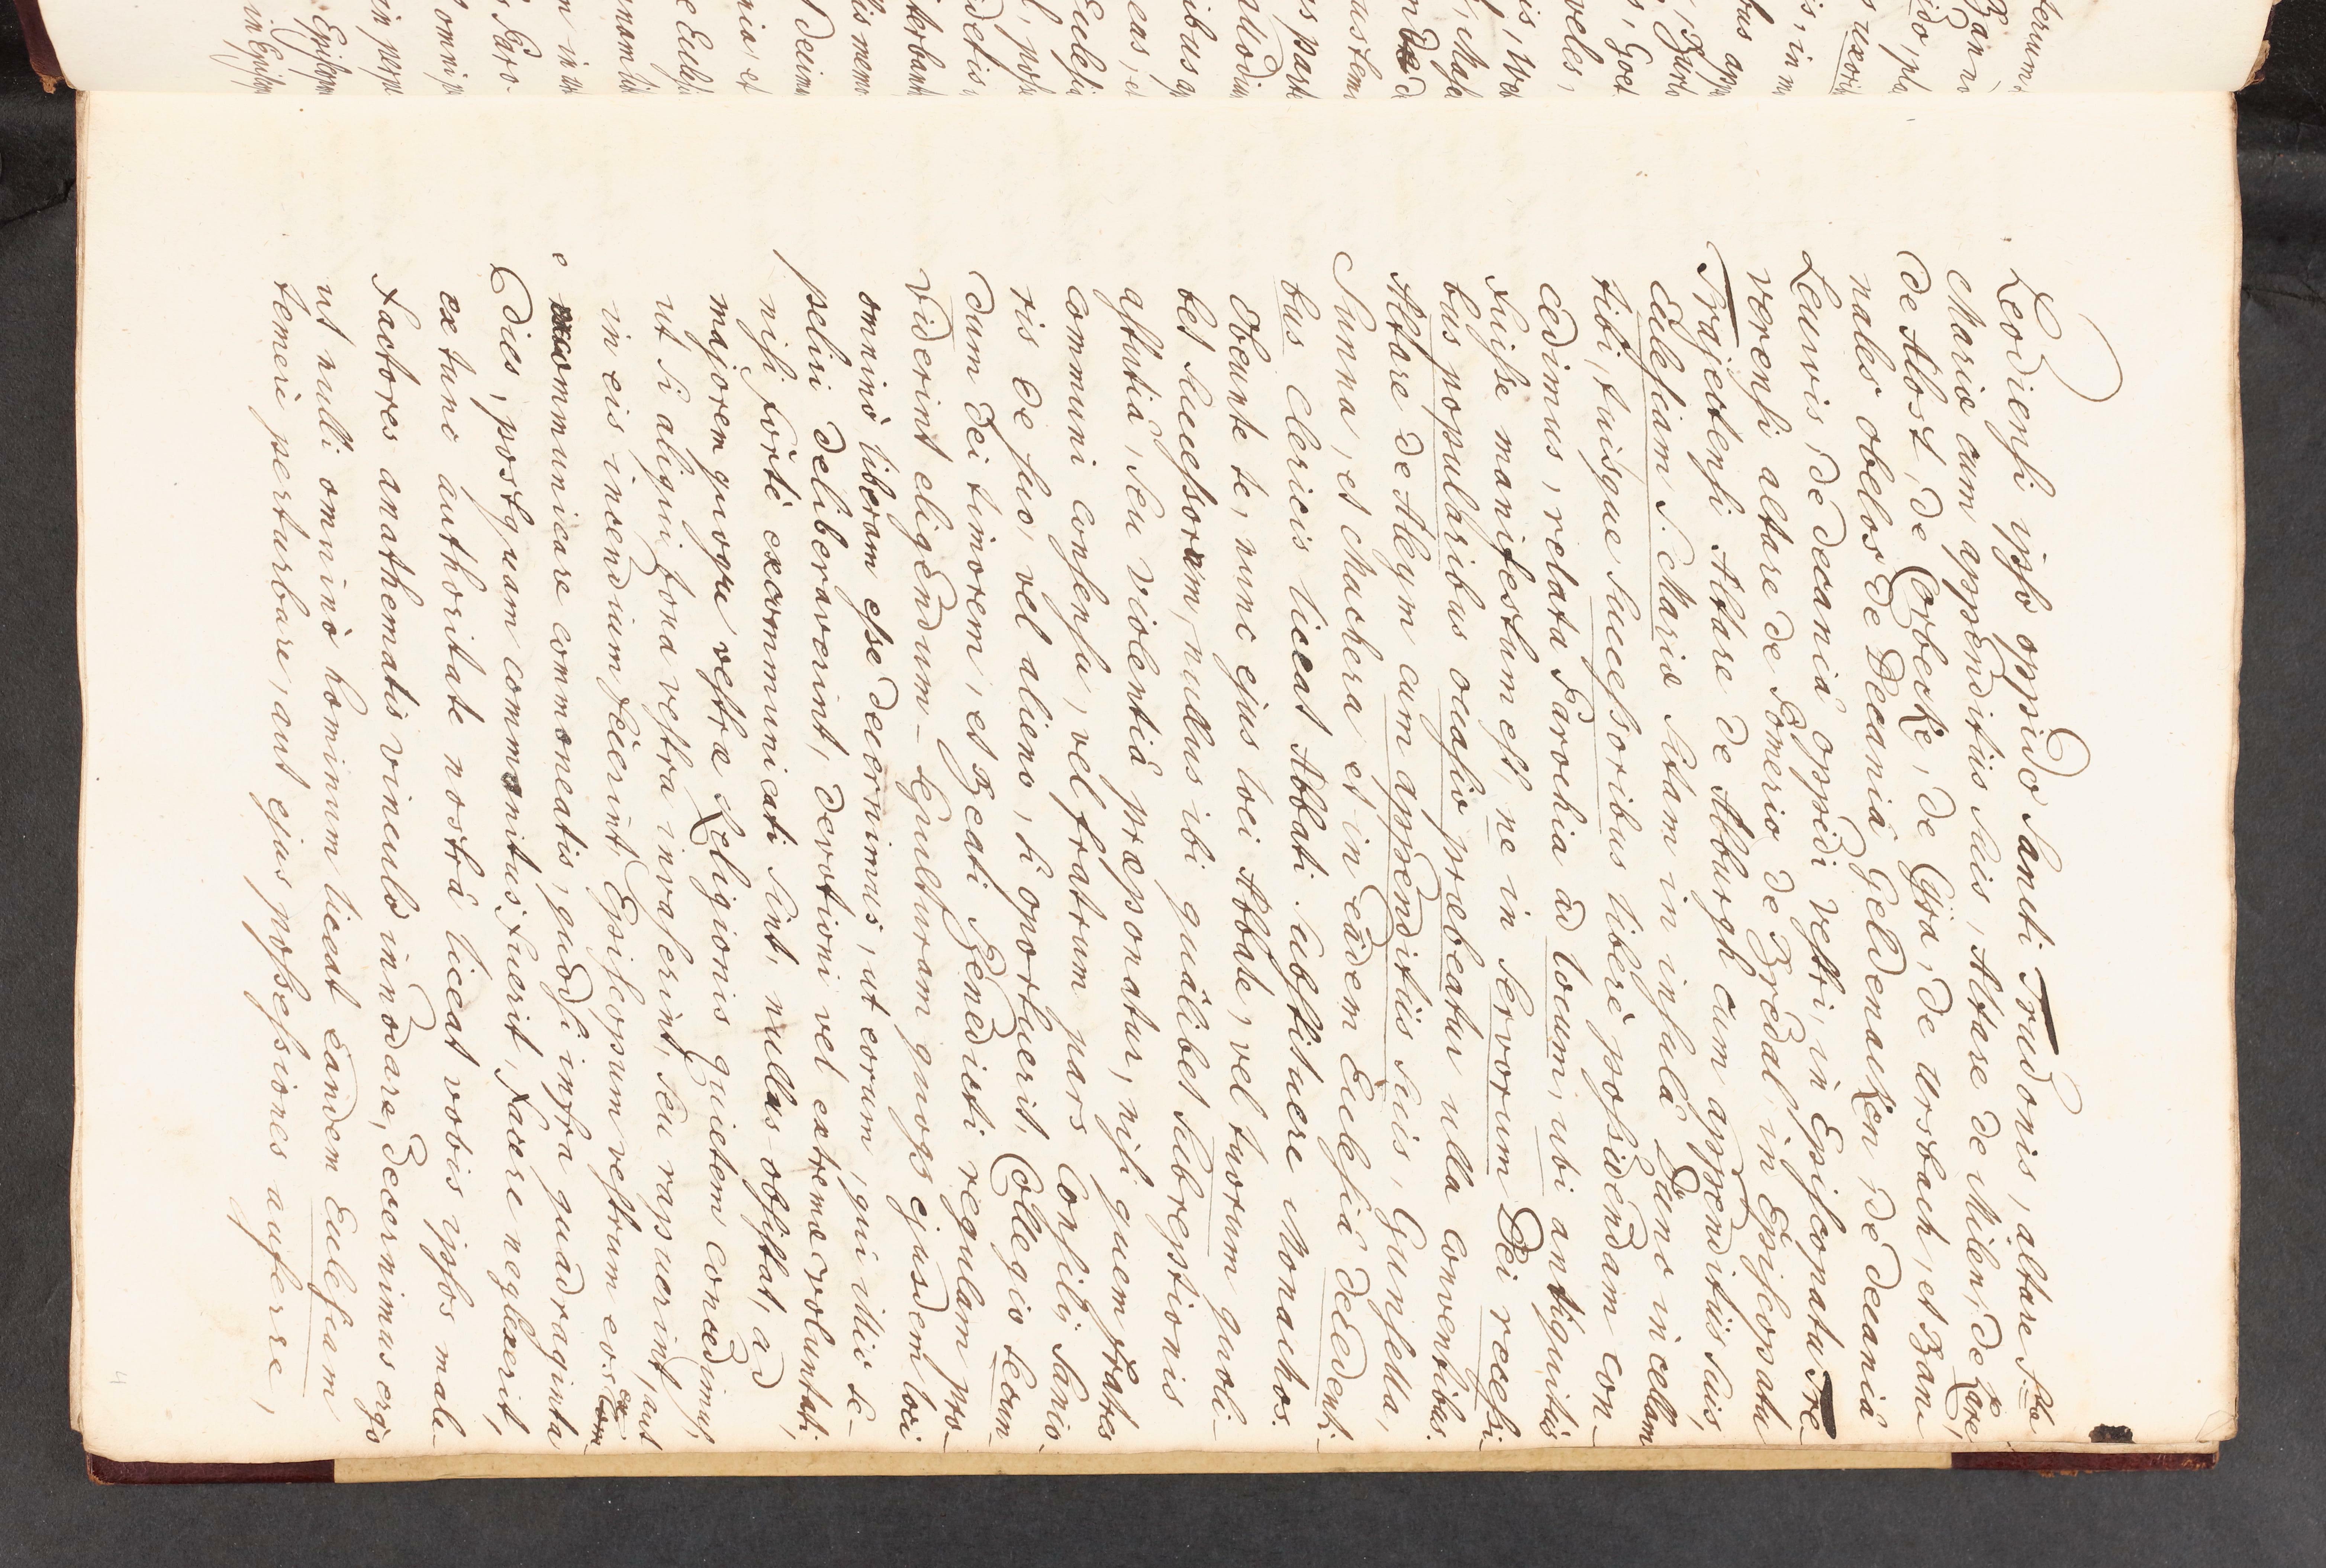 Leodiensi ipso oppido Sancti Trudonis, altare S.tæ
Mariæ cum appenditiis suis, Altare de Milen, de Kere,
de Alost, de Corbecke, de Gÿra, de Ursbach, et Bann
nales obelos de Decaniâ Geldenacken, de decaniâ
Leuvis, de decaniâ oppidi vestri, in Episcopatu Tre-
verensi altare de Pomerio de Bredal, in Episcopatu
Trajectensi Altare de Alburgh cum appenditiis suis,
Ecclesiam S. Mariæ sitam in insulâ Duno in cellam
tibi, tuisque successoribus liberè possidendam con-
cedimus, relata Parochia ad locum, ubi antiquitùs
fuisse manifestum est, ne in servorum Dei recessi-
bus popularibus occasio præbeatur ulla conventibus.
Altare de Aleym cum appenditiis suis, Gunsella,
Sunna, et Machera et in eâdem Ecclesiâ decedenti-
bus clericis liceat Abbati substituere Monachos.
Obeunte te, nunc ejus loci Abbate, vel tuorum quoli-
bet successorum, nullus ibi quâlibet subreptionis
astutiâ, seu violentiâ præponatur, nisi quem fratres
communi consensu, vel fratrum pars Consilij sanio-
ris de suo, vel alieno, si oportuerit, Collegio secun-
dum Dei timorem, et Beati Benedicti regulam pro-
viderint eligendum - sepulturam quoqs ejusdem loci
omninò liberam esse decernimus, ut eorum, qui illic se-
peliri deliberaverint, devotioni vel extremæ voluntati,
nisi fortè excommunicati sint, nullus obsistat, ad
majorem quoque vestræ Religionis quietem concedimus,
ut si aliqui bona vestra invaserint, seu rapuerint, aut
in eis incendium fecerint, Episcopum vestrum eos
communicare commoneatis, quòd si infra quadraginta
dies, postquam commonitus fuerit, facere neglexerit,
ex tunc authoritate nostrâ liceat vobis ipsos male-
factores anathematis vinculo innodare, decernimus ergo
ut nulli omninò hominum liceat eandem Ecclesiam
temerè perturbare, aut ejus possessiones auferre,
4